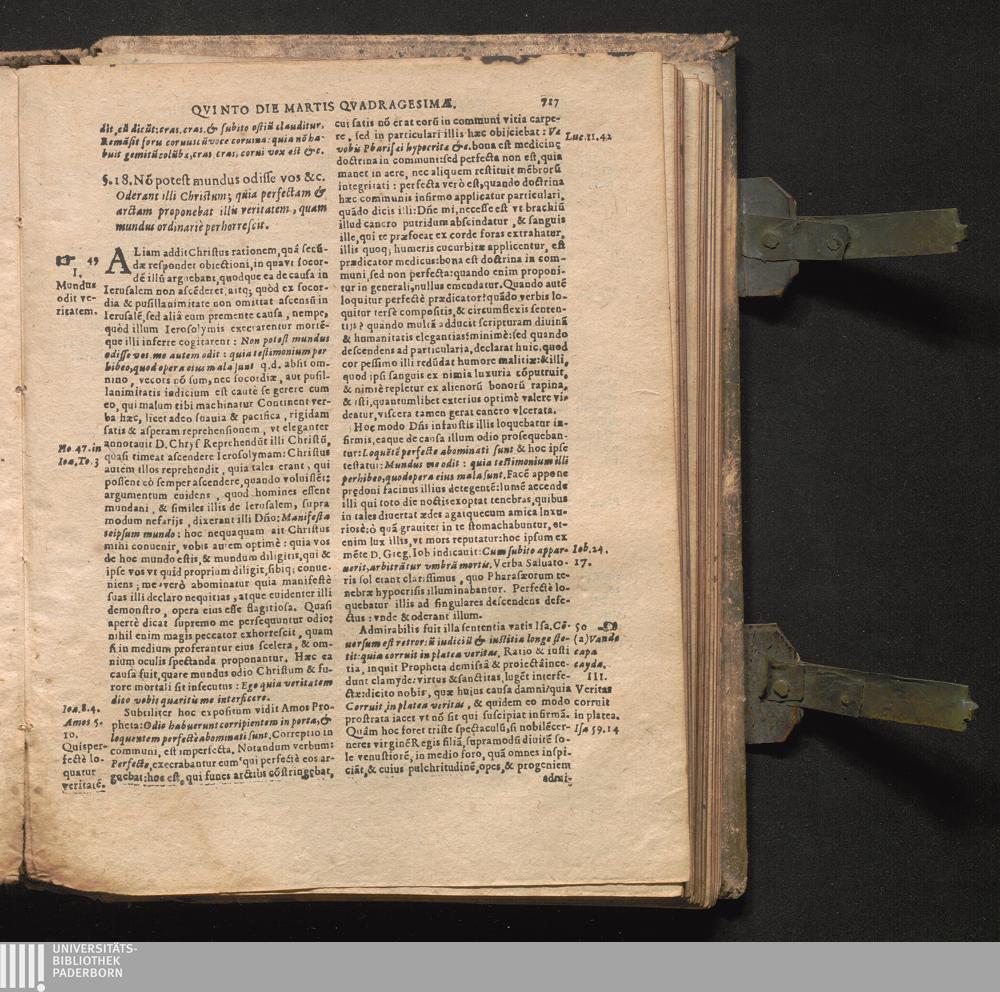 QVINTO DIE MARTIS QVADRAGESIMÆ.
717
dit, cũ dicũt: cras, cras, & subito ostiũ clauditur.
Remãsit foru coruus cũ voce coruina: quia nõ ha-
buit gemitũ colũbæ, cras cras, corui vox est &c.
§. 18. Nõ potest mundus odisse vos &c.
Oderant illi Christum; quia perfectam &
arctam proponebat illis veritatem, quam
mundus ordinariè perhorrescit.
49
I.
Mundus
odit ve-
ritatem.
ALiam addit Christus rationem, quâ secũ-
dæ respondet obiectioni, in qua vt socor-
dẽ illũ arguebant, quodque ea de causa in
Ierusalem non ascẽderet, aitq; quòd ex socor-
dia & pusillanimitate non omittat ascensũ in
Ierusalẽ, sed aliâ eum premente causa, nempe,
quòd illum Ierosolymis execrarentur mortẽ-
que illi inferre cogitarent: Non potest mundus
odisse vos. me autem odit: quia testimonium per
hibeo, quod opera eius mala sunt q.d. absit om-
nino, vecors nõ sum, nec socordiæ, aut pusil-
lanimitatis iudicium est cautè se gerere cum
eo, qui malum tibi machinatur Continent ver-
ba hæc, licet adeo suauia & pacifica, rigidam
satis & asperam reprehensionem, vt eleganter
Ho. 47. in
Ioa, To. 3
annotauit D. Chrys Reprehendũt illi Christũ,
quasi timeat ascendere Ierosolymam: Christus
autem illos reprehendit, quia tales erant, qui
possent eò semper ascendere, quando voluissẽt:
argumentum euidens, quod homines essent
mundani, & similes illis de Ierusalem, supra
modum nefarijs, dixerant illi Dño: Manifesta
teipsum mundo: hoc nequaquam ait Christus
mihi conuenit, vobis autem optimè: quia vos
de hoc mundo estis, & mundum diligitis, qui &
ipse vos vt quid proprium diligit, sibiq; conue-
niens; me verò abominatur quia manifestè
suas illi declaro nequitias, atque euidenter illi
demonstro, opera eius esse flagitiosa. Quasi
apertè dicat supremo me persequuntur odio:
nihil enim magis peccator exhorrescit, quam
si in medium proferantur eius scelera, & om-
nium oculis spectanda proponantur. Hæc ea
causa fuit, quare mundus odio Christum & fu-
rore mortali sit insecutus: Ego quia veritatem
dico vobis quæritis me interficere.
Ioa, 8. 4.
Amos 5.
10.
Quis per-
fectè lo-
quatur
veritatẽ.
Subtiliter hoc expositum vidit Amos Pro-
pheta: Odio habuerunt corripientem in porta, &
loquentem perfectè abominati sunt. Correptio in
communi, est imperfecta. Notandum verbum:
Perfectè, execrabantur eum qui perfectè eos ar-
guebat: hoc est, qui funes arctius cõstringebat,
cui satis nõ erat eorũ in communi vitia carpe-
re, sed in particulari illis hæc obijciebat: Væ
Luc. 11. 42
vobis Pharisæi hypocritæ &c. bona est medicinæ
doctrina in communi: sed perfecta non est, quia
manet in aere, nec aliquem restituit mẽbrorũ
integritati: perfecta verò est, quando doctrina
hæc communis infirmo applicatur particulari,
quãdo dicis illi: Dñe mi, necesse est vt brachiũ
illud cancro putridum abscindatur, & sanguis
ille, qui te præfocat ex corde foras extrahatur,
illis quoq; humeris cucurbitæ applicentur, est
prædicator medicus: bona est doctrina in com-
muni, sed non perfecta: quando enim proponi-
tur in generali, nullus emendatur. Quando autẽ
loquitur perfectè prædicator? quãdo verbis lo-
quitur tersè compositis, & circumflexis senten-
tijs? quando multã adducit scripturam diuinã
& humanitatis elegantias? minimè: sed quando
descendens ad particularia, declarat huic, quod
cor pessimo illi redũdat humore malitiæ: & illi,
quod ipsi sanguis ex nimia luxuria cõputruit,
& nimiè repletur ex alienorũ bonorũ rapina,
& isti, quantumlibet exterius optimè valere vi-
deatur, viscera tamen gerat cancro vlcerata.
Hoc modo Dñs infaustis illis loquebatur in-
firmis, eaque de causa illum odio prosequeban-
tur: Loquẽtẽ perfectè abominati sunt & hoc ipse
testatur: Mundus me odit: quia testimonium illi
perhibeo, quod opera eius mala sunt. Facẽ appone
prędoni facinus illius detegentẽ: lumẽ accende
illi qui toto die noctis exoptat tenebras, quibus
in tales diuertat ædes agatque cum amica luxu-
riosè: ò quã grauiter in te stomachabuntur, et-
enim lux illis, vt mors reputatur: hoc ipsum ex
mẽte D. Greg. Iob indicauit: Cum subito appar-
Iob. 24.
17.
uerit, arbitrãtur vmbrã mortis. Verba Saluato-
ris sol erant clarissimus, quo Pharasæorum te-
nebræ hypocrisis illuminabantur. Perfectè lo-
quebatur illis ad singulares descendens defe-
ctus: vnde & oderant illum.
50
(a) Vande
capa
cayda.
III.
Veritas
corruit
in platea.
Isa 59. 14
Admirabilis fuit illa sententia vatis Isa. Cõ-
uersum est retrorsũ iudiciũ & iustitia longe ste-
tit: quia corruit in platea veritas. Ratio & iusti
tia, inquit Propheta demissâ & proiectâ ince-
dunt clamyde: virtus & sanctitas, lugẽt interfe-
ctæ: dicito nobis, quæ huius causa damni? quia
Corruit in platea veritas, & quidem eo modo
prostrata iacet vt nõ sit qui suscipiat infirmã.
Quàm hoc foret triste spectaculũ, si nobilẽ cer-
neres virginẽ Regis filiã, supramodũ diuitẽ so-
le venustiorẽ, in medio foro, quã omnes inspi-
ciãt, & cuius pulchritudinẽ, opes, & progeniem
admi-
UNIVERSITÄTS-
BIBLIOTHEK
PADERBORN